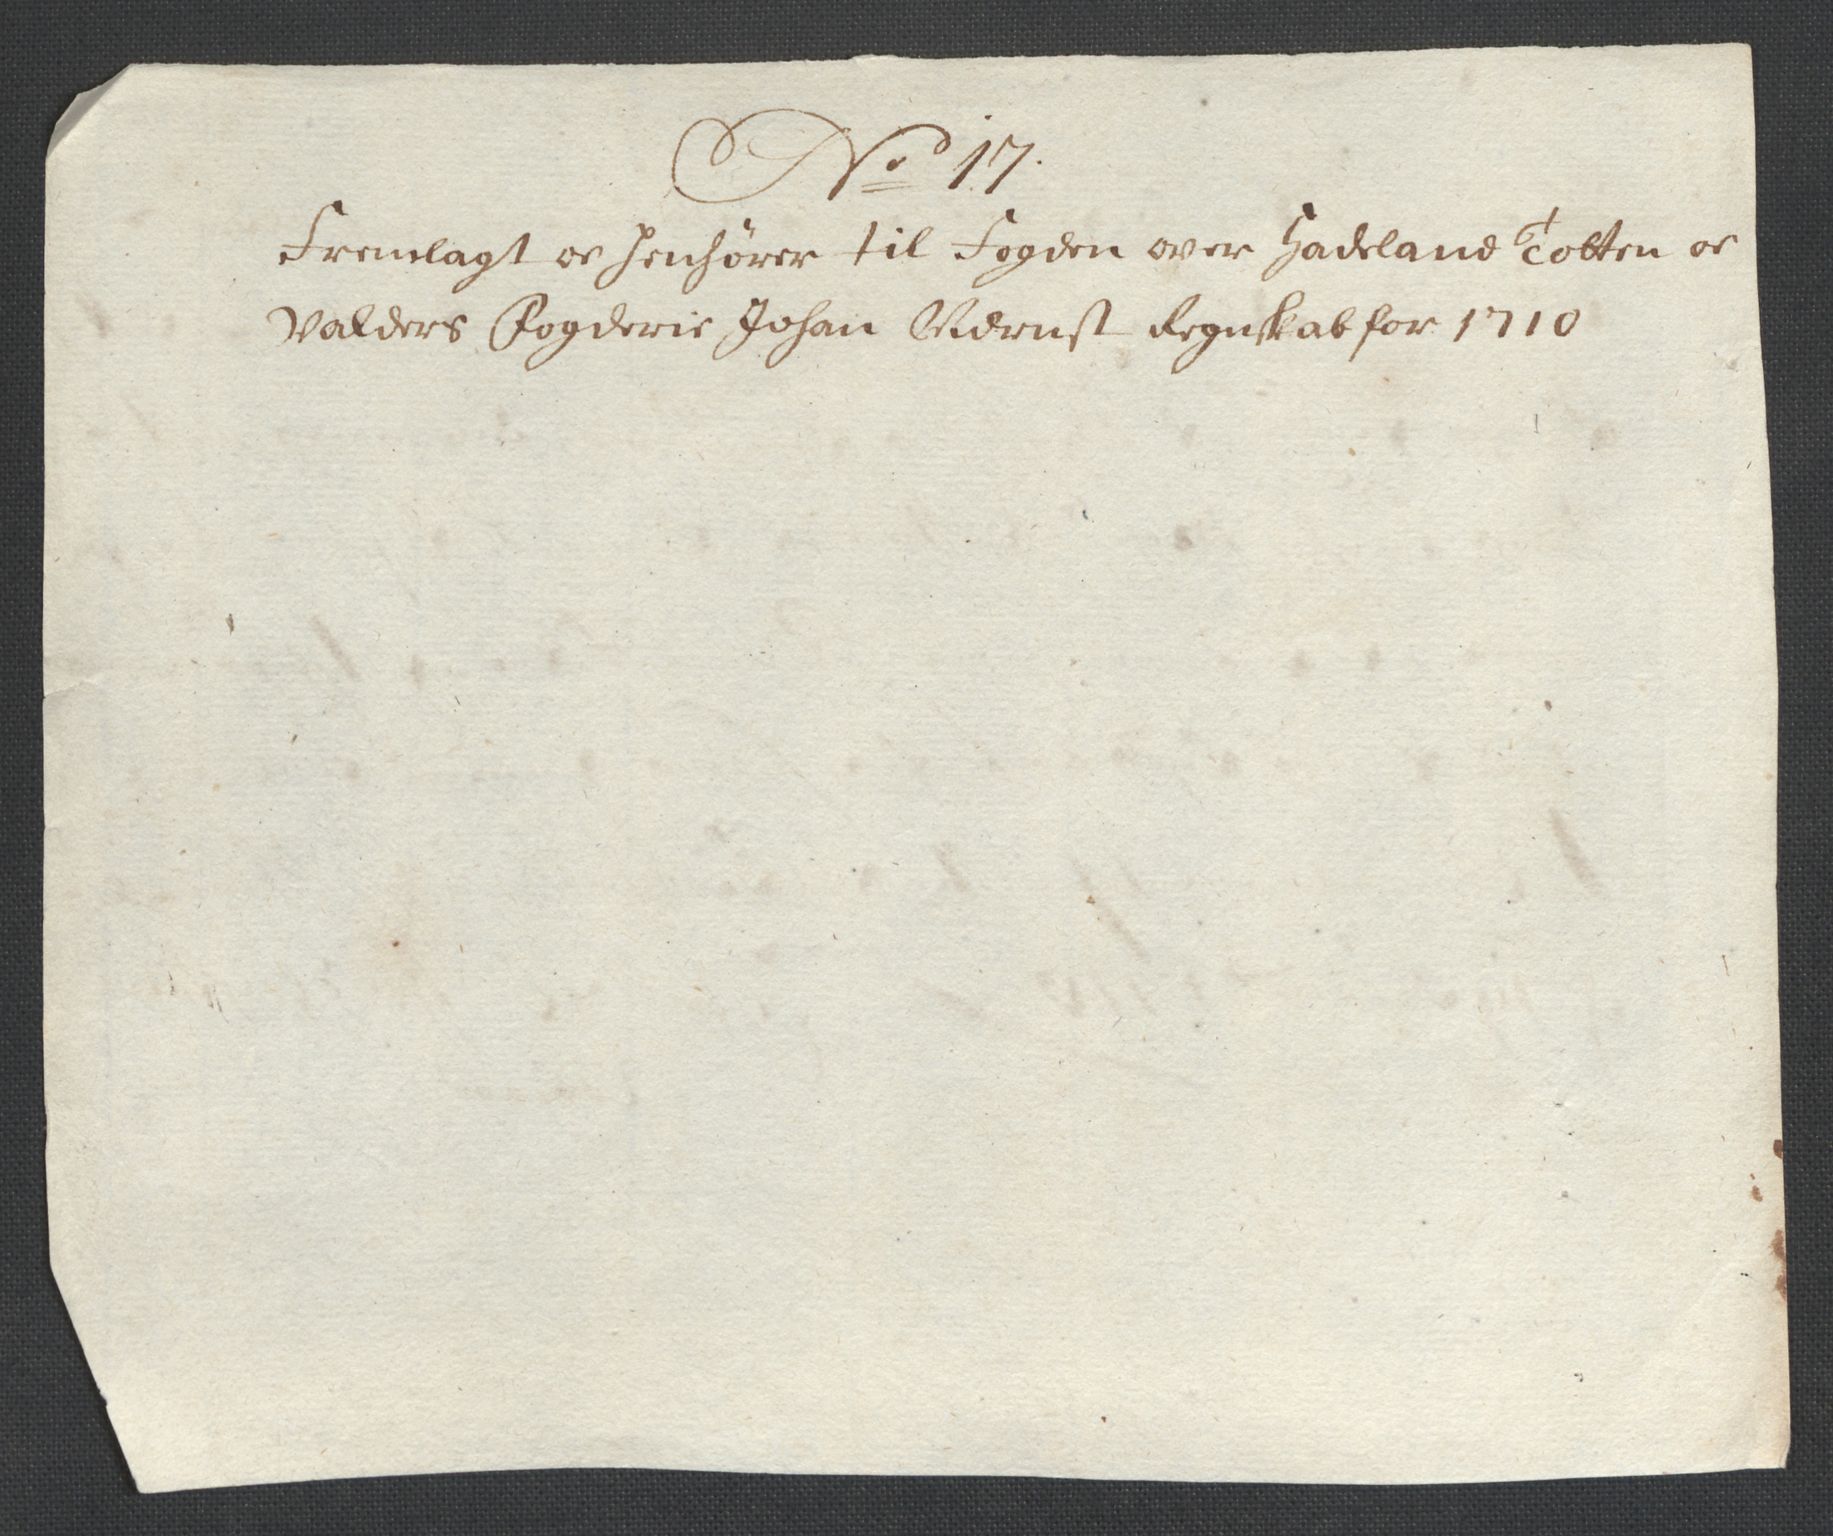 No 17.
Fremlagt oc henhører til Fogden over Hadeland Totten oc
Valders Fogderie Johan Wærnst Regnskab for 1710